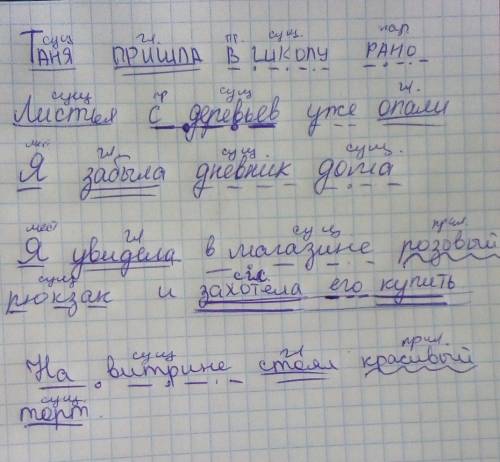 сущ гл. пр. сущ. нар.
Таня пришла в школу рано
сущ пр сущ гл.
Листья с деревьев уже опали
мест гл сущ. сущ.
Я забыла дневник дома
мест гл сущ прил.
Я увидела в магазине розовый
сущ гл.
рюкзак и захотела его купить
сущ гл прил.
На витрине стоял красивый
сущ.
торт.